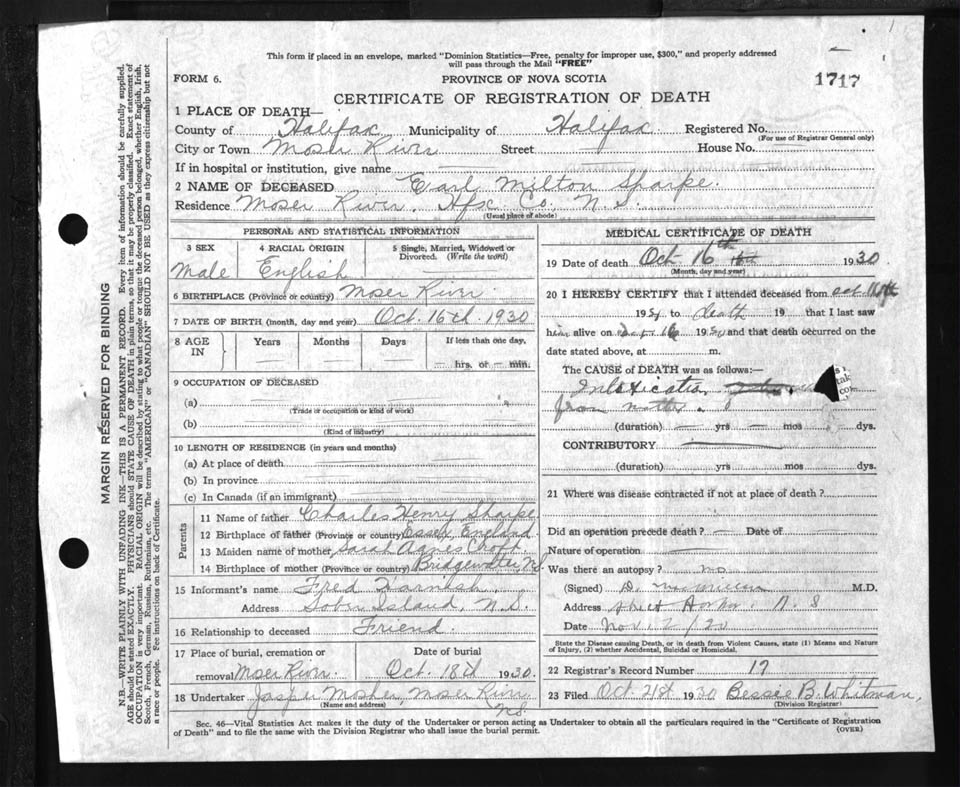 This form if placed in an envelope, marked "Dominion Statistics—Free, penalty for improper use, $300," and properly addressed
will pass through the Mail "FREE"
FORM 6.
PROVINCE OF NOVA SCOTIA
1717
CERTIFICATE OF REGISTRATION OF DEATH
1 PLACE OF DEATH—
County of Halifax Municipality of Halifax Registered No.
(For use of Registrar General only)
City or Town Moser River Street House No.
If in hospital or institution, give name
2 NAME OF DECEASED Earl Milton Sharpe.
Residence Moser River. Hfx Co. N.S.
(Usual place of abode)
PERSONAL AND STATISTICAL INFORMATION
3 SEX 4 RACIAL ORIGIN 5 Single, Married, Widowed or
Divorced. (Write the word)
Male English
6 BIRTHPLACE (Province or country) Moser River.
7 DATE OF BIRTH (month, day and year) Oct. 16th. 1930
8 AGE IN Years Months Days If less than one day,
hrs. or min.
9 OCCUPATION OF DECEASED
(a)
(Trade or occupation or kind of work)
(b)
(Kind of industry)
10 LENGTH OF RESIDENCE (in years and months)
(a) At place of death
(b) In province
(c) In Canada (if an immigrant)
Parents
11 Name of father Charles Henry Sharpe.
12 Birthplace of father (Province or country) Essex, England.
13 Maiden name of mother Sarah Agnes Croft.
14 Birthplace of mother (Province or country) Bridgewater, N.S.
15 Informant's name Fred
Address Sober Island, N.S.
16 Relationship to deceased Friend.
17 Place of burial, cremation or Date of burial
removal Moser River Oct. 18th 1930
18 Undertaker Mosher, Moser River
(Name and address) N.S.
MEDICAL CERTIFICATE OF DEATH
19 Date of death Oct 16th 1930
(Month, day and year)
20 I HEREBY CERTIFY that I attended deceased from Oct.
19 to death 19 that I last saw
him alive on 16 19 and that death occurred on
date stated above, at m.
The CAUSE of DEATH was as follows:—
Intoxication
from mother.
(duration) yrs mos dys.
CONTRIBUTORY
(duration) yrs mos dys.
21 Where was disease contracted if not at place of death?
Did an operation precede death? Date of
Nature of operation
Was there an autopsy? no
(Signed) M.D.
Address Sheet Harbor. N.S
Date Nov
State the Disease causing Death, or in death from Violent Causes, state (1) Means and Nature
of Injury, (2) whether Accidental, Suicidal or Homicidal.
22 Registrar's Record Number 17
23 Filed Oct. 21st 1930 Bessie B. Whitman,
(Division Registrar)
Sec. 46—Vital Statistics Act makes it the duty of the Undertaker or person acting as Undertaker to obtain all the particulars required in the "Certificate of Registration
of Death" and to file the same with the Division Registrar who shall issue the burial permit.
(OVER)
MARGIN RESERVED FOR BINDING
N.B.—WRITE PLAINLY WITH UNFADING INK—THIS IS A PERMANENT RECORD. Every item of information should be carefully supplied.
AGE should be stated EXACTLY. PHYSICIANS should STATE CAUSE OF DEATH in plain terms, so that it may be properly classified. Exact statement of
OCCUPATION is very important. RACIAL ORIGIN will be described by stating to what people or tongue the deceased person belonged, whether English, Irish,
Scotch, French, German, Russian, Ruthenian, etc. The terms "AMERICAN" or "CANADIAN" SHOULD NOT BE USED as they express citizenship but not
a race or people. Fee instructions on back of Certificate.